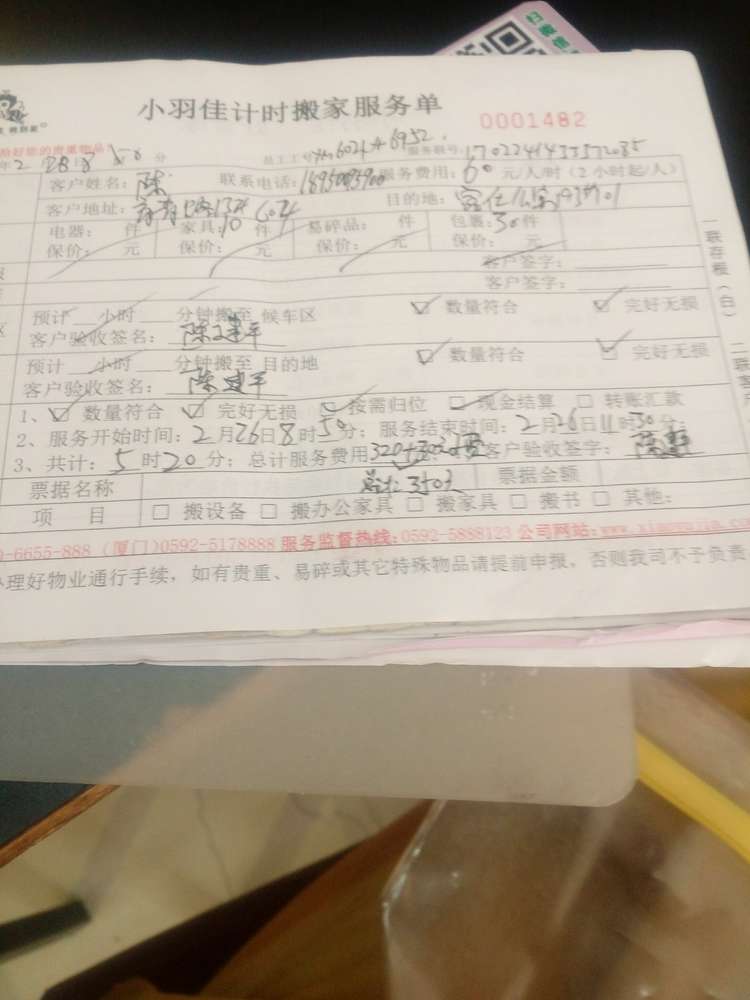 小羽佳计时搬家服务单
0001482
员工工号 6024 + 6952 服务单号:
客户姓名:陈 联系电话: 服务费用:60元/人/时(2小时起/人)
客户地址: 目的地:
电器: 件 家具:10 件 易碎品: 件 包裹:30件
保价: 元 保价: 元 保价: 元 保价: 元
客户签字:
客户签字:
预计 小时 分钟搬至 候车区 数量符合 完好无损
客户验收签名:陈建平
预计 小时 分钟搬至 目的地 数量符合 完好无损
客户验收签名:陈建平
1、 数量符合 完好无损 按需归位 现金结算 转账汇款
2、服务开始时间:2月26日8时50分;服务结束时间:2月26日11时30分;
3、共计:5时20分;总计服务费用320+30 客户验收签字:
票据名称 总共350元 票据金额
项 目 □ 搬设备 □ 搬办公家具 □ 搬家具 □ 搬书 □ 其他:
-6655-888 (厦门)0592-5178888 服务监督热线:0592-5888123 公司网站:
办理好物业通行手续,如有贵重、易碎或其它特殊物品请提前申报,否则我司不予负责
一联存根(白)